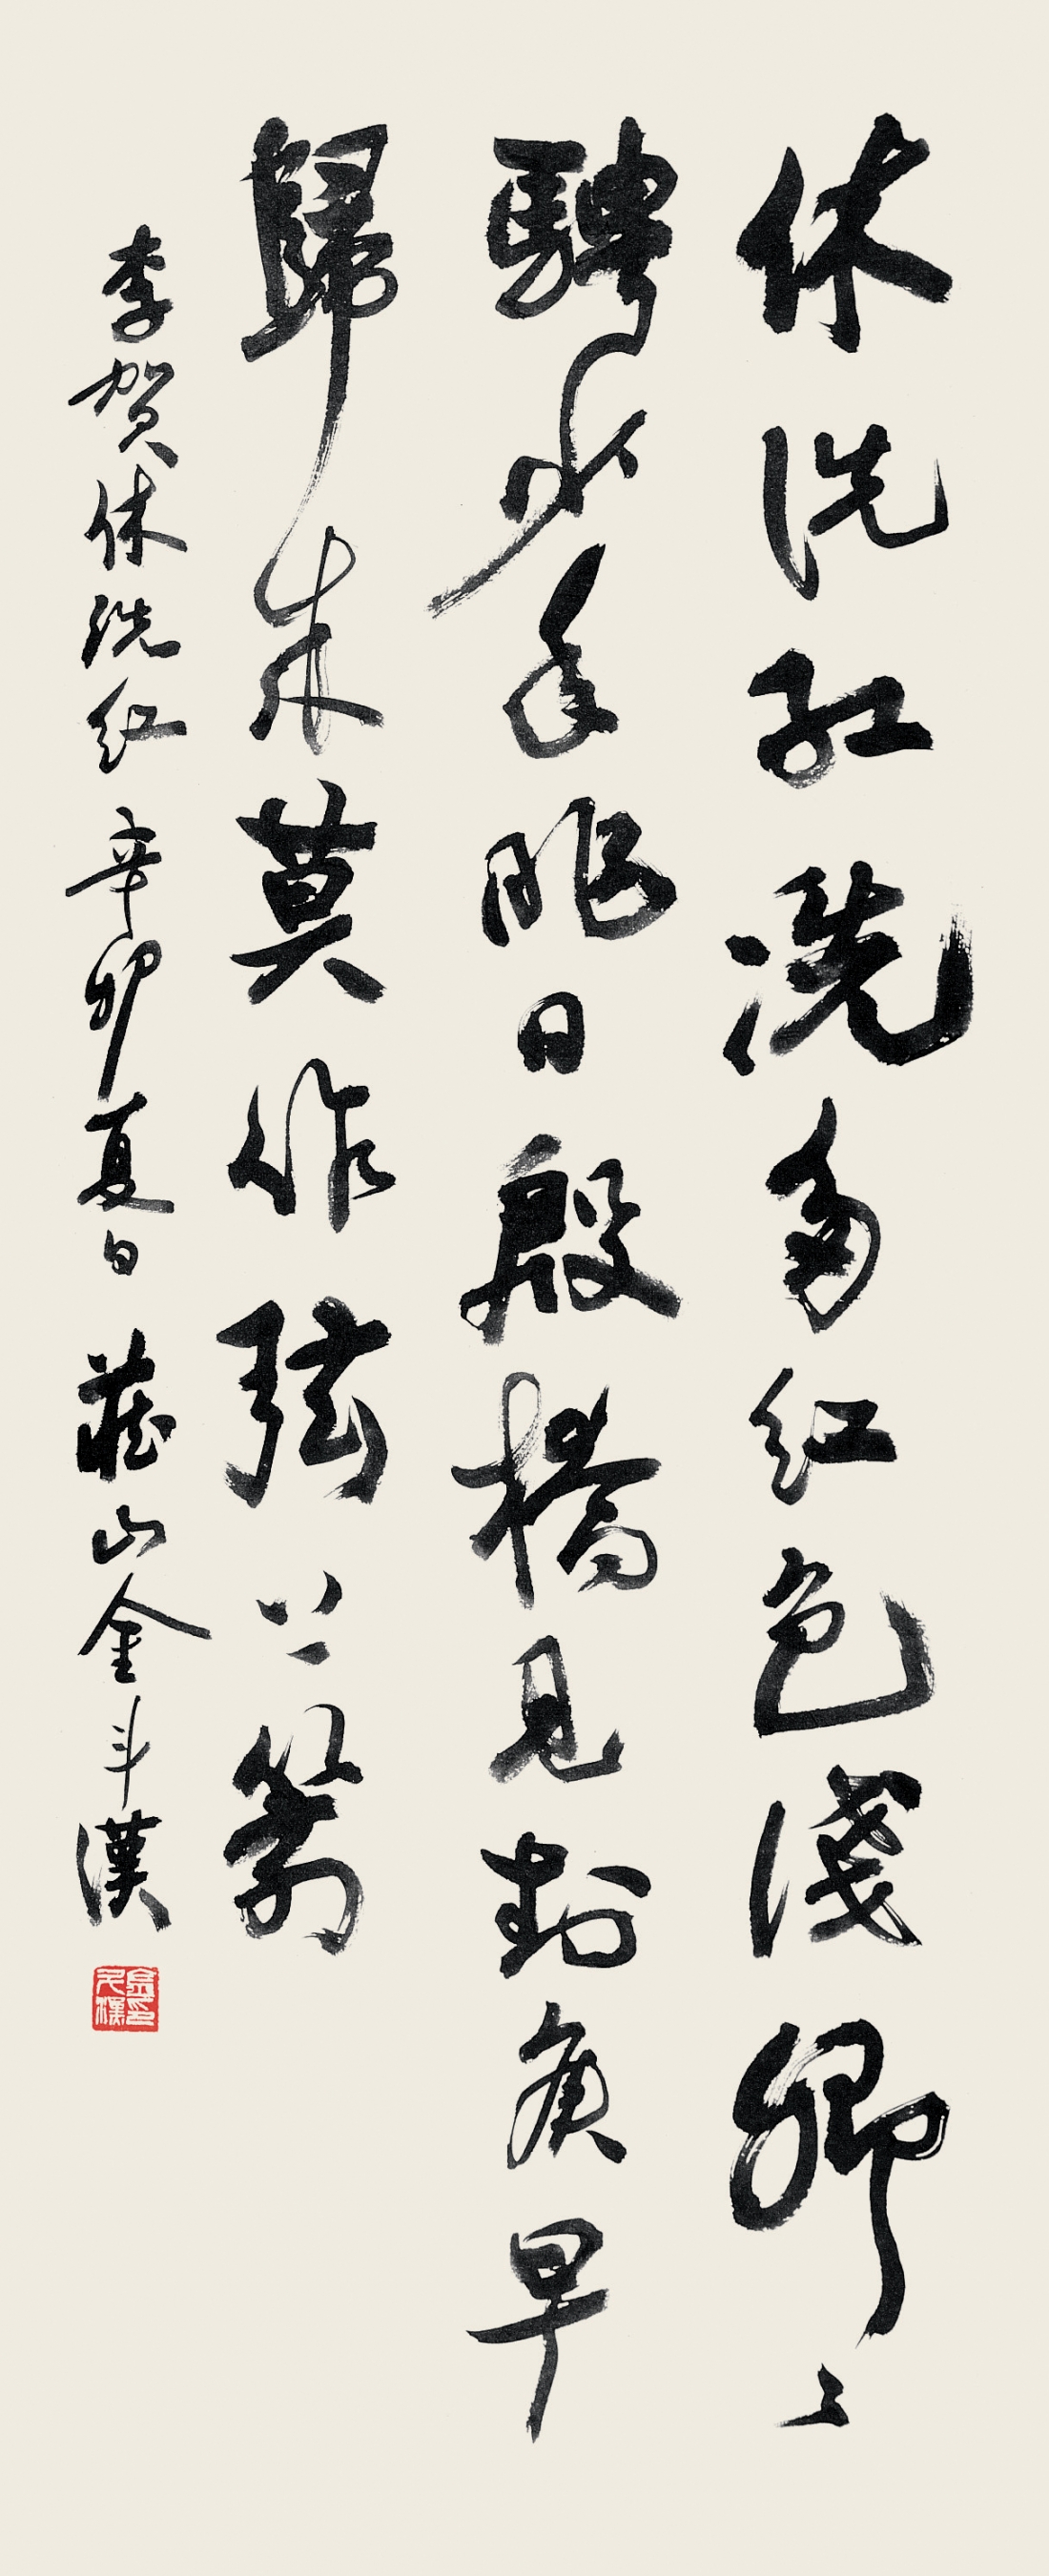 休洗红洗多红色淺卿〻
騁少年昨日殷橋見封侯早
歸来莫作弦上箭
李贺休洗红 辛卯夏日 山金斗漢
金印斗漢